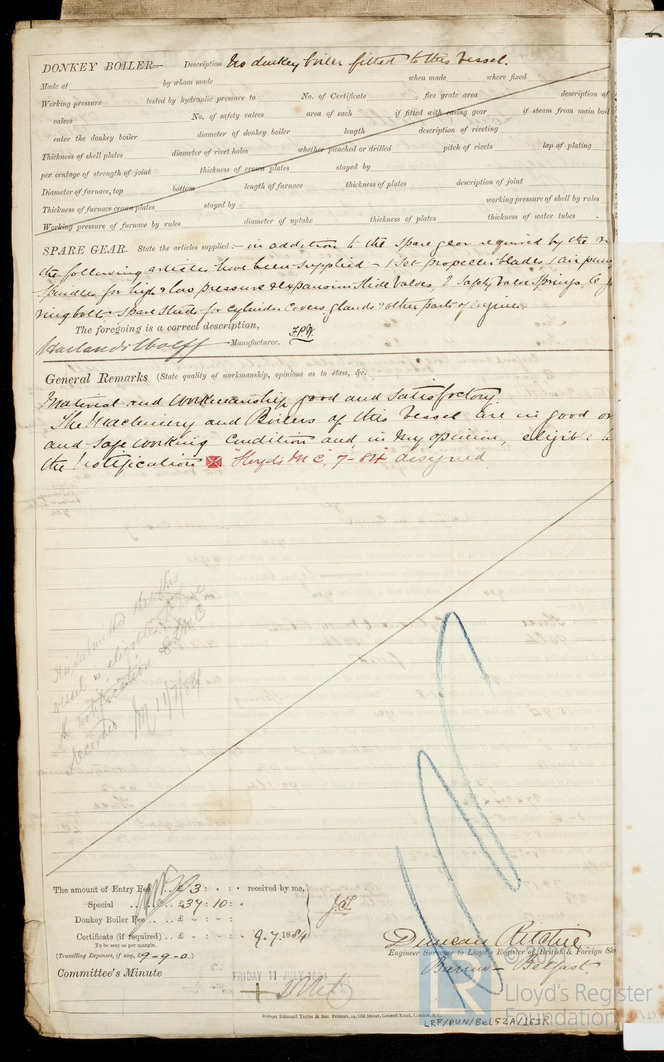 DONKEY BOILER— Description No donkey boiler fitted to this vessel.
Made at by whom made when made where fixed
Working pressure tested by hydraulic pressure to No. of Certificate fire grate area description of
valves No. of safety valves area of each if fitted with easing gear if steam from main boil
enter the donkey boiler diameter of donkey boiler length description of riveting
Thickness of shell plates diameter of rivet holes whether punched or drilled pitch of rivets lap of plating
per centage of strength of joint thickness of crown plates stayed by
Diameter of furnace, top bottom length of furnace thickness of plates description of joint
Thickness of furnace crown plates stayed by working pressure of shell by rules
Working pressure of furnace by rules diameter of uptake thickness of plates thickness of water tubes
SPARE GEAR. State the articles supplied:— in addition to the spare gear required by the
the following articles have been supplied – 1 Set propeller blades, 1 air pum
Spindles for high & low pressure & expansion slide valves, 2 Safety Valve Springs, 6
ring bolts Spare Studs for Cylinder Covers glands & other parts of engines
The foregoing is a correct description,
Harland & Wolff Manufacturer.
General Remarks (State quality of workmanship, opinions as to class, &c.
Material and Workmanship good and Satisfactory
The Machinery and Boilers of this Vessel are in good or
and Safe working Condition and in my opinion, eligible
the notification "Lloyds M C" 7-84 assigned
It is submitted that this
vessel is eligible to have
the notification LMC
recorded 11/7/84
The amount of Entry Fee .. £ 3 : · : · received by me,
Special .. £ 37 : 10 : ·
Donkey Boiler Fee .. .. £ - : - :
Certificate (if required) .. £ - : · : · 9.7.1884
To be sent as per margin.
(Travelling Expenses, if any, £ 9-9-0)
Committee's Minute
FRIDAY 11 JULY 1884
Duncan Ritchie
Engineer Surveyor to Lloyd's Register of British & Foreign Sh
Barrow – Belfast
Lloyd's Register
Foundation
LRF/PUN/Bel52A/263R